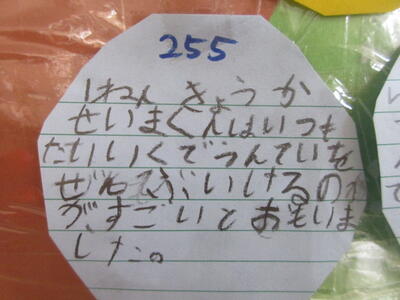 255
1ねん きょうか
せいまくんはいつも
たいいくでうんていを
ぜんぶいけるのが
がすごいとおもいま
した。